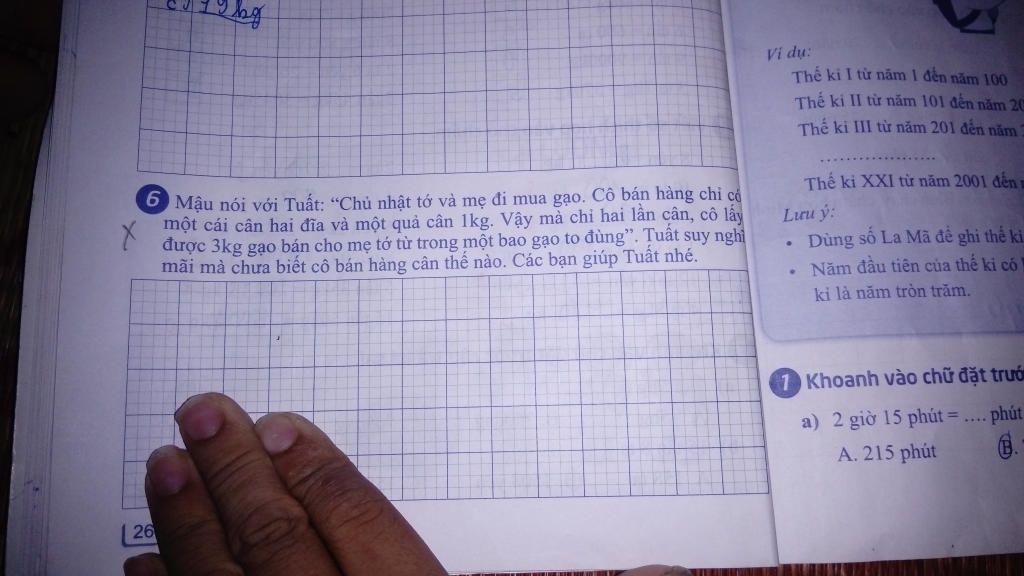 79kg
6 Mậu nói với Tuất: “Chủ nhật tớ và mẹ đi mua gạo. Cô bán hàng chỉ có
một cái cân hai đĩa và một quả cân 1kg. Vậy mà chỉ hai lần cân, cô lấy
được 3kg gạo bán cho mẹ tớ từ trong một bao gạo to đùng”. Tuất suy nghĩ
mãi mà chưa biết cô bán hàng cân thế nào. Các bạn giúp Tuất nhé.
26
Ví dụ:
Thế kỉ I từ năm 1 đến năm 100
Thế kỉ II từ năm 101 đến năm 20
Thế kỉ III từ năm 201 đến năm
....................
Thế kỉ XXI từ năm 2001 đến
Lưu ý:
• Dùng số La Mã để ghi thế kỉ
• Năm đầu tiên của thế kỉ có
kỉ là năm tròn trăm.
1 Khoanh vào chữ đặt trướ
a) 2 giờ 15 phút = .... phút
A. 215 phút
B.